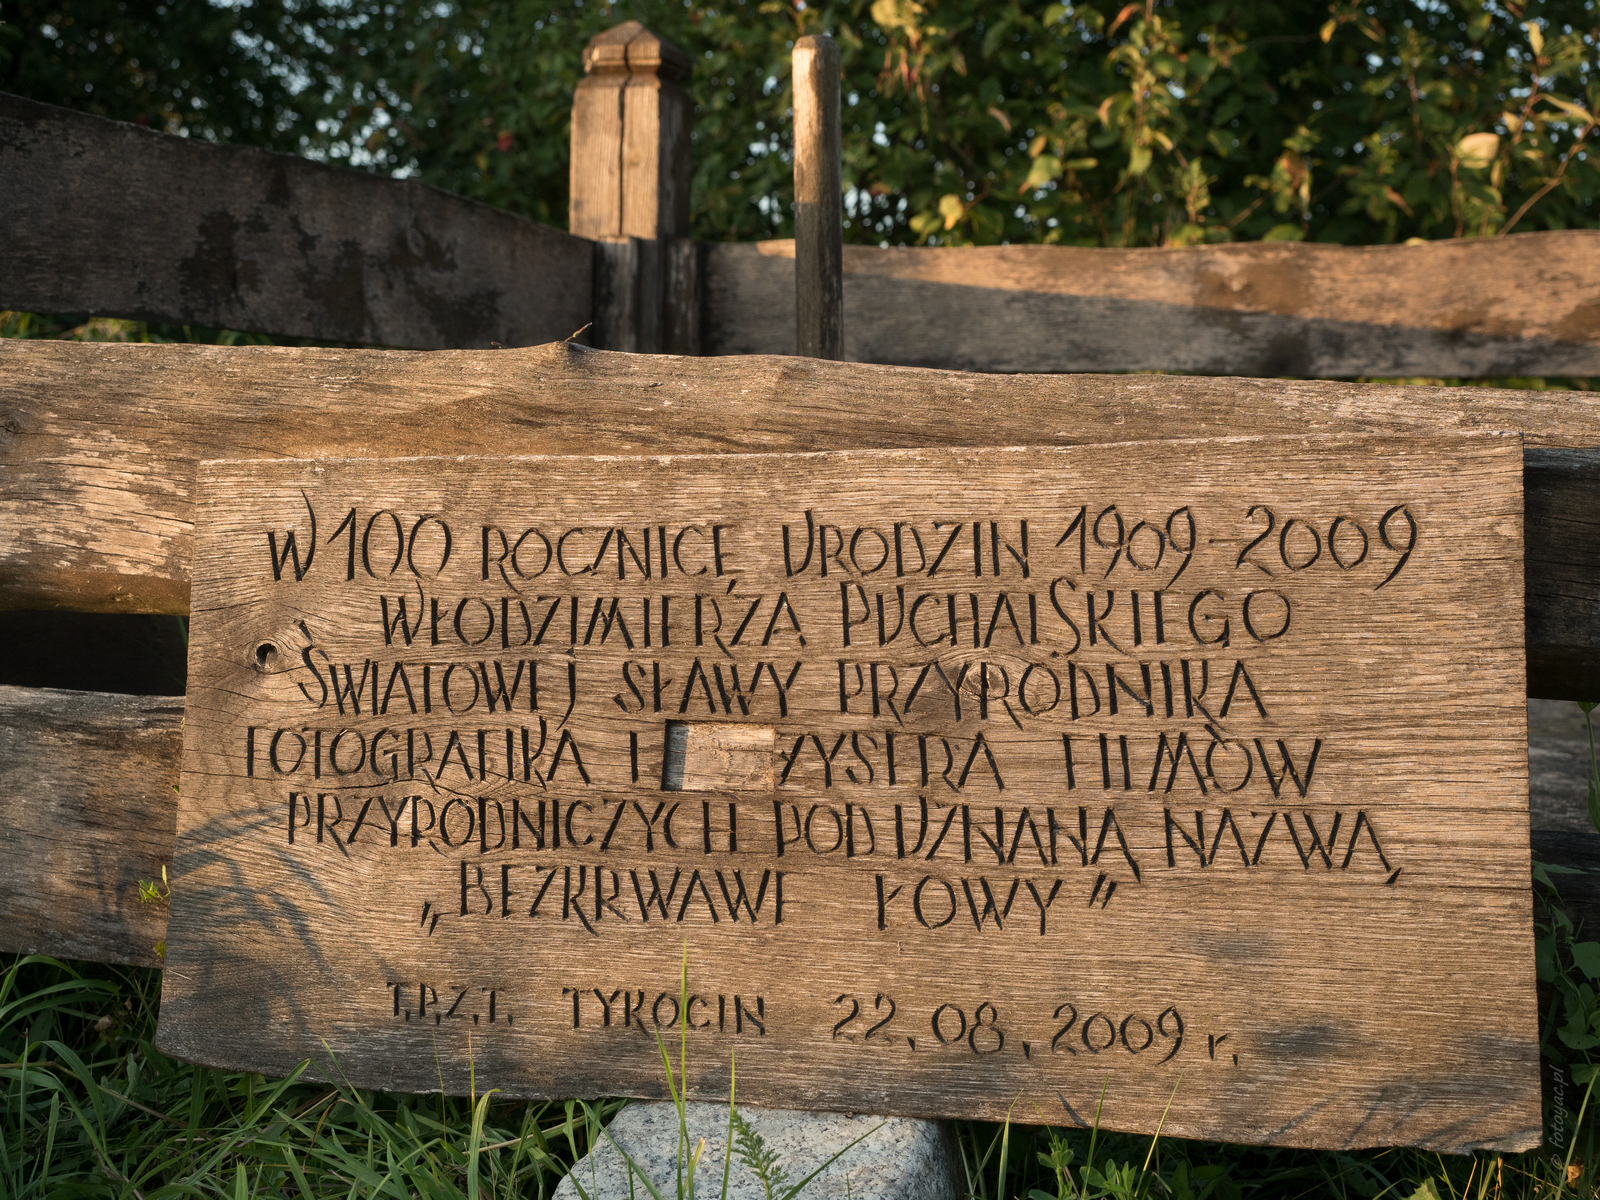 W 100 ROCZNICĘ URODZIN 1909-2009
WŁODZIMIERZA PUCHALSKIEGO
ŚWIATOWEJ SŁAWY PRZYRODNIKA
FOTOGRAFIKA I ŻYSERA FILMÓW
PRZYRODNICZYCH POD UZNANĄ NAZWĄ
„BEZKRWAWE ŁOWY"
T.P.Z.T. TYKOCIN 22.08.2009 r.
© fotoyac.pl